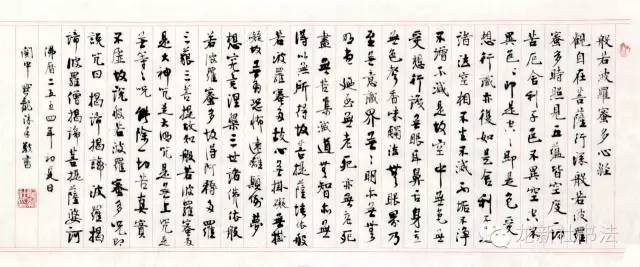 般若波羅蜜多心經
觀自在菩薩行深般若波羅
蜜多時照見五蘊皆空度一切
苦厄舍利子色不異空々不
異色々即是空々即是色受
想行識亦復如是舍利子是
諸法空相不生不滅不垢不淨
不增不減是故空中無色無
受想行識無眼耳鼻舌身意
無色聲香味觸法無眼界乃
至無意識界無々明亦無々
明盡乃至無老死亦無老死
盡無苦集滅道無智亦無
得以無所得故菩提薩埵依般
若波羅蜜多故心無掛礙無掛
礙故無有恐怖遠離顛倒夢
想究竟涅槃三世諸佛依般
若波羅蜜多故得阿耨多羅
三藐三菩提故知般若波羅蜜多
是大神咒是大明咒是無上咒是
無等々咒能除一切苦真實
不虛故說般若波羅蜜多咒即
說咒曰揭諦揭諦波羅揭
諦波羅僧揭諦菩提薩婆訶
佛曆二五五四年初夏日
閩中 龍 敬書
龙新社书法